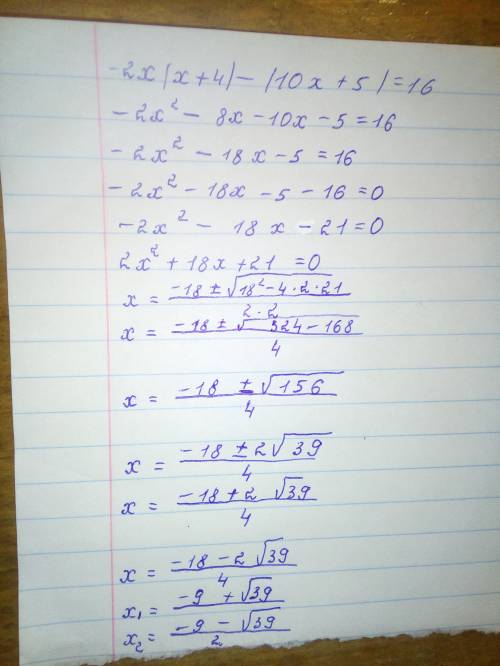 -2x(x+4)-(10x+5)=16
-2x² - 8x - 10x - 5 = 16
-2x² - 18x - 5 = 16
-2x² - 18x - 5 - 16 = 0
-2x² - 18x - 21 = 0
2x² + 18x + 21 = 0
x = (-18 ± √(18² - 4·2·21))/(2·2)
x = (-18 ± √(324 - 168))/4
x = (-18 ± √156)/4
x = (-18 ± 2√39)/4
x = (-18 + 2√39)/4
x = (-18 - 2√39)/4
x₁ = (-9 + √39)/
x₂ = (-9 - √39)/2